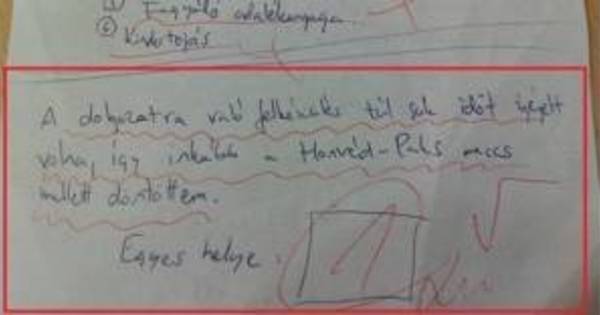 ⑤ Fagyálló adalékanyaga
⑥ Kindertojás
A dolgozatra való felkészülés túl sok időt igényelt
volna, így inkább a Honvéd-Paks meccs
mellett döntöttem.
Egyes helye:
1